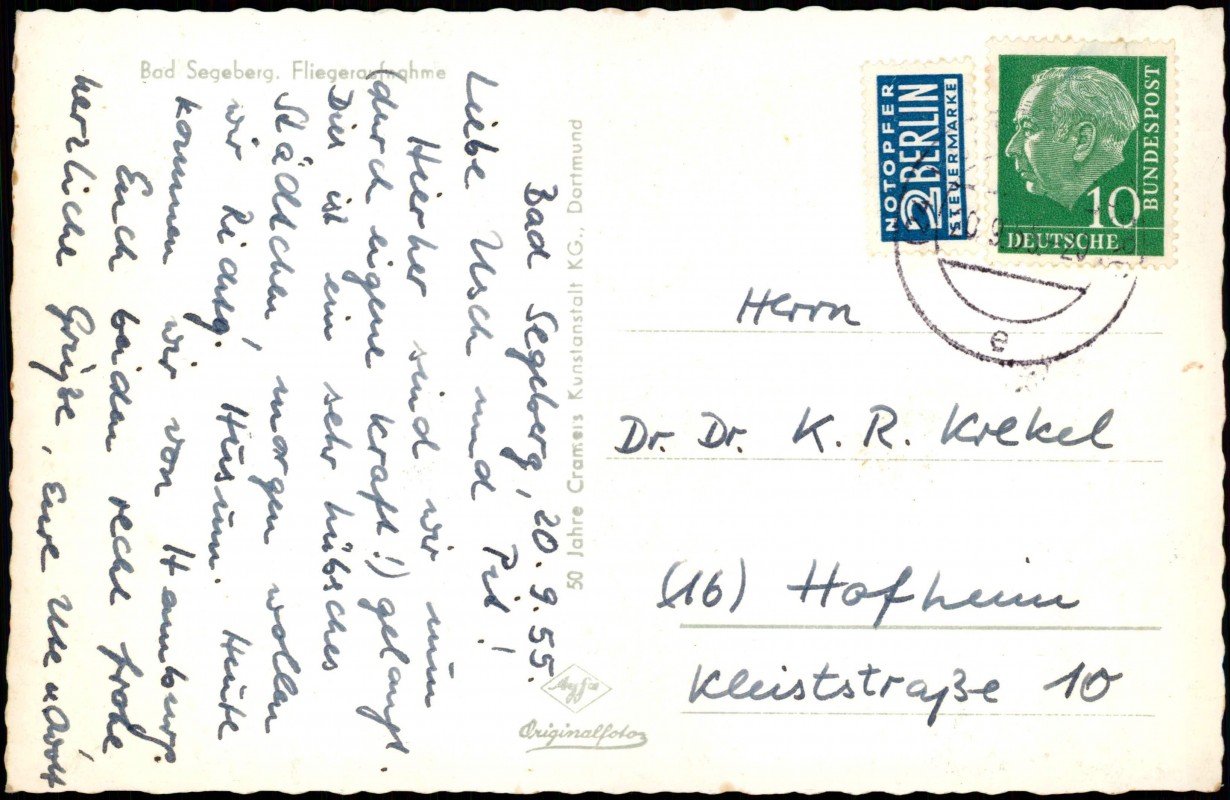 Bad Segeberg. Fliegeraufnahme
Bad Segeberg, 20.9.55.
Liebe Usch und Pit!
Hierher sind wir nun
(durch eigene Kraft!) gelangt.
Dies ist ein sehr hübsches
Städtchen, morgen wollen
wir Richtg. Husum. Heute
kommen wir von Hamburg.
Euch beiden recht frohe
herzliche Grüße, Eure Ute u. Adolf
50 Jahre Cramers Kunstanstalt KG., Dortmund
Agfa
Originalfoto
NOTOPFER
2 BERLIN
STEUERMARKE
10
DEUTSCHE
BUNDESPOST
e
Herrn
Dr. Dr. K. R. Krekel
(16) Hofheim
Kleiststraße 10